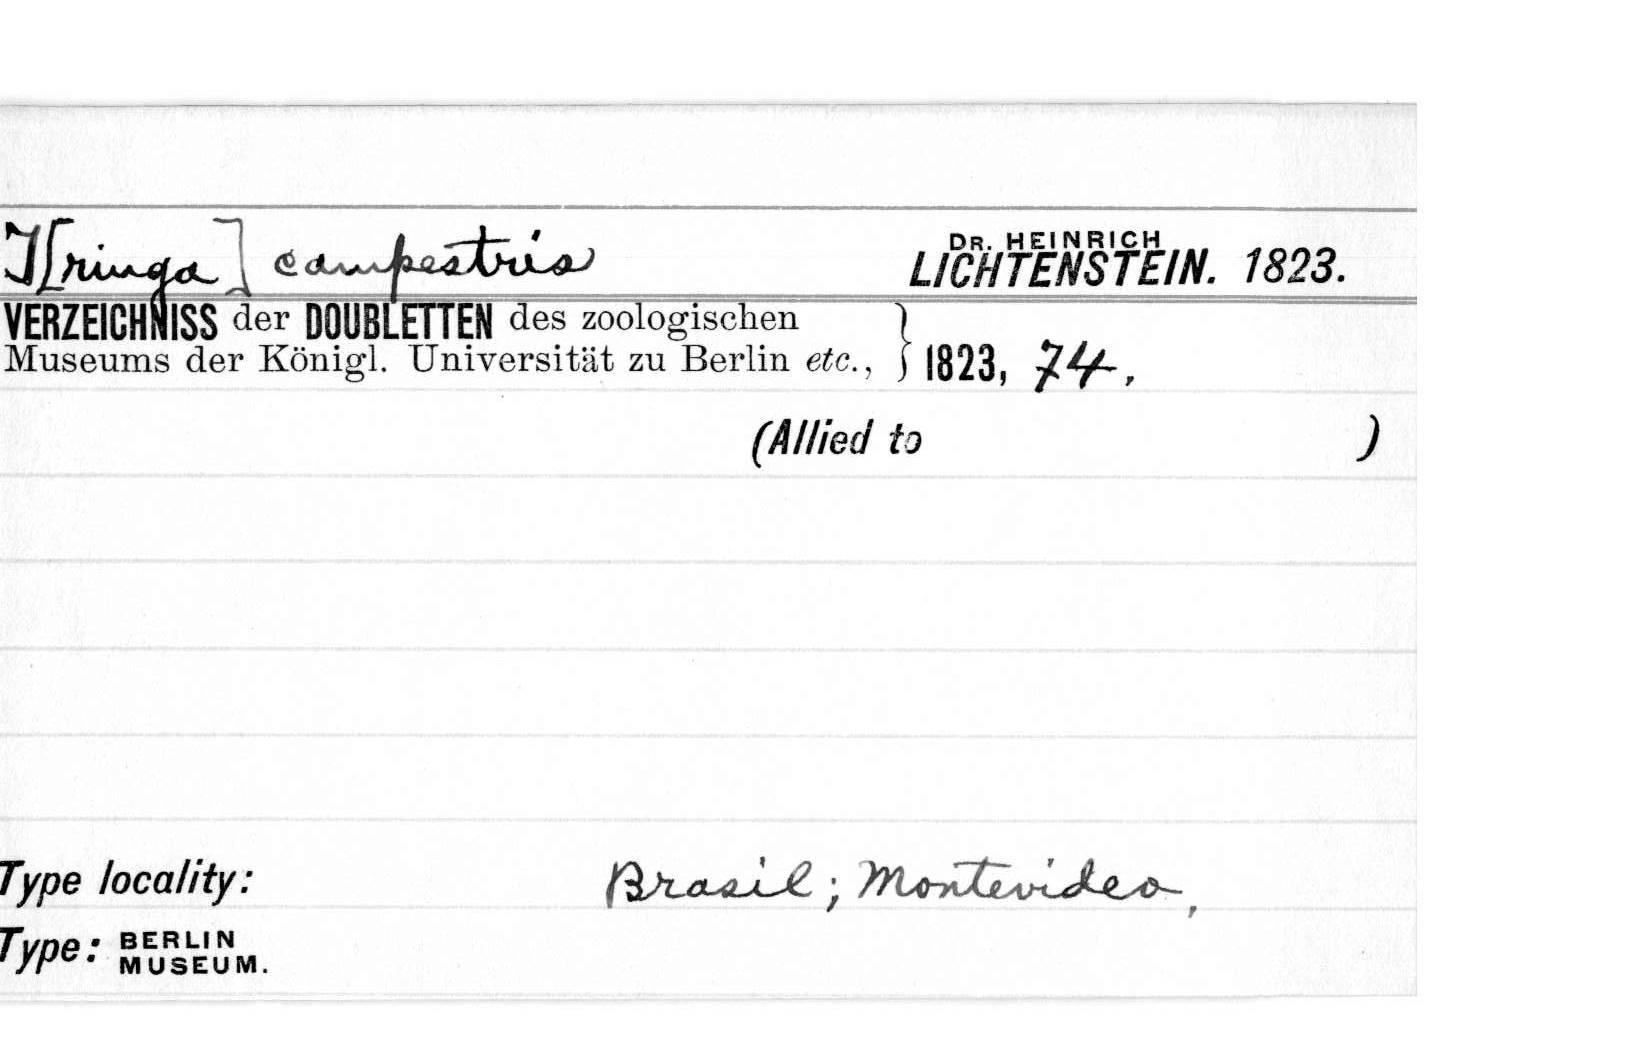 T[ringa] campestris DR. HEINRICH LICHTENSTEIN. 1823.
VERZEICHNISS der DOUBLETTEN des zoologischen
Museums der Königl. Universität zu Berlin etc., } 1823, 74.
(Allied to )
Type locality: Brasil; Montevideo,
Type: BERLIN MUSEUM.